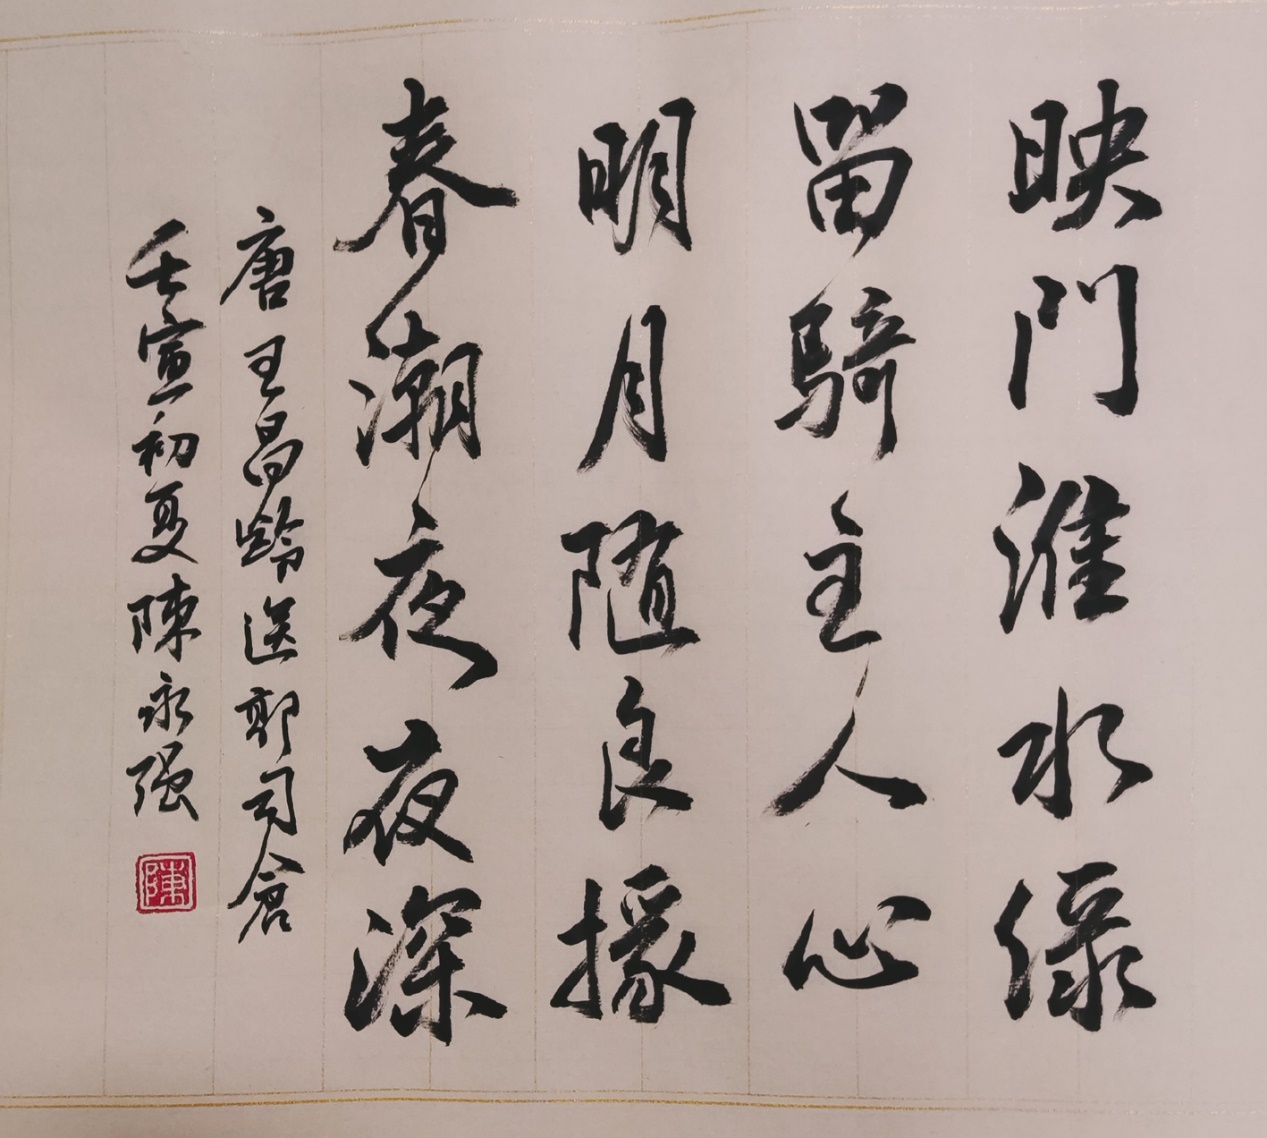 映門淮水绿
留騎主人心
明月随良掾
春潮夜夜深
唐王昌龄送郭司倉
壬寅初夏陳永强
陳